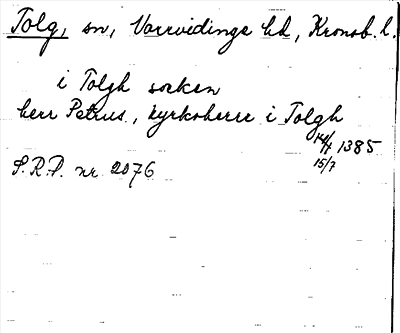 Tolg, sn, Norrvidinge hd, Kronob. l.
i Tolgh socken
herr Petrus, kyrkoherre i Tolgh
14/7 1385
15/7
S.R.P. nr 2076